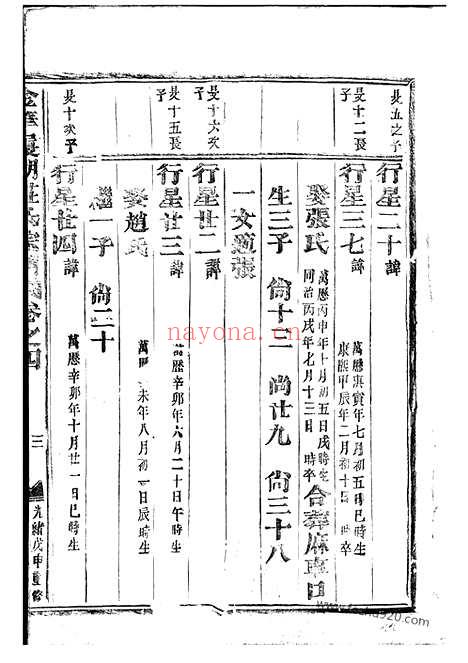 長五之子
行星二十諱
長十二長子
行星三七諱
萬歷庚寅年七月初五日巳時生
康熙甲辰年二月初十日 時卒
娶張氏
萬歷丙申年十月初五日戌時生
同治丙戌年七月十三日 時卒
合葬麻車口
生三子 尙十三 尚廿九 尙三十八
一女適張
長十六次子
行星廿二諱
長十五長子
行星廿三諱
萬歷辛卯年六月二十日午時生
娶趙氏
萬 未年八月初一日辰時生
繼一子 尙二十
長十次子
行星廿四諱
萬歷辛卯年十月廿一日巳時生
金華 湖莊氏宗譜 卷之四
三
光緒戊申重修
nayona.cn